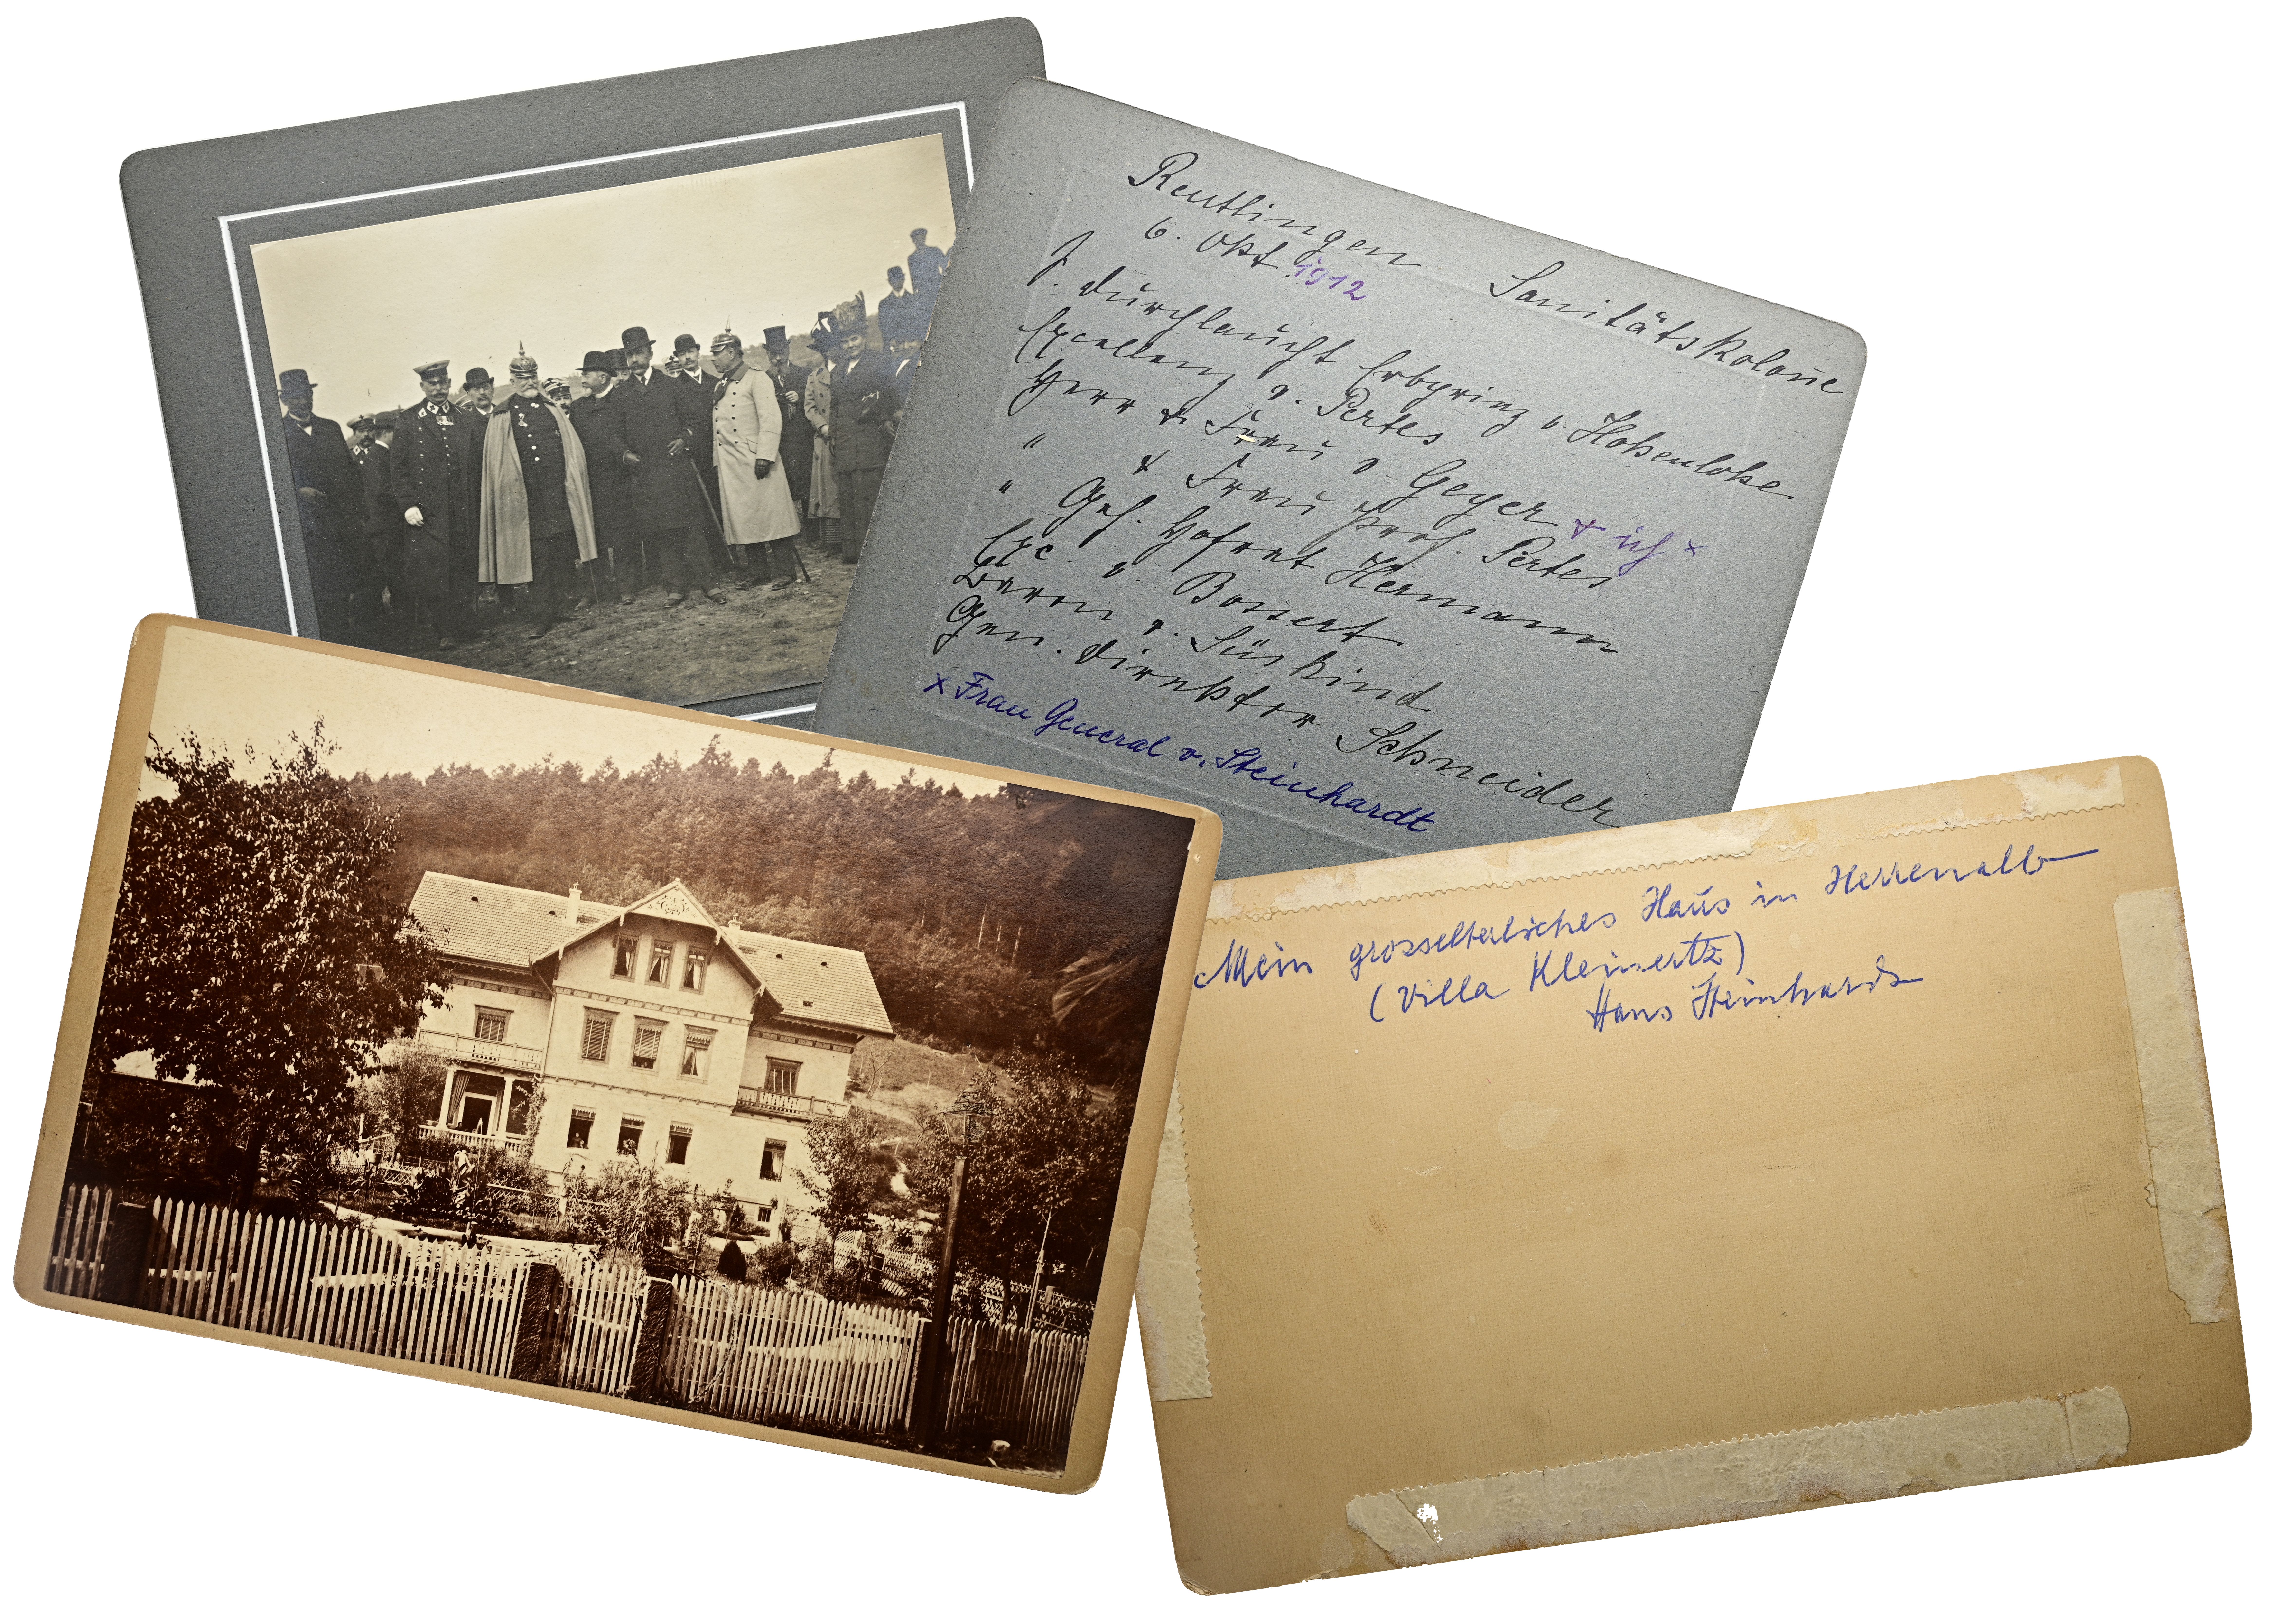 Reutlingen Sanitätskolonne
6. Okt. 1912
S. Durchlaucht Erbprinz v. Hohenlohe
Excellenz v. Pertes
Herr & Frau v. Geyer & ich ×
" & Frau Prof. Pertes
" Geh. Hofrat Hermann
Exc. v. Bossert
Baron v. Süskind
Gen. Direktor Schneider
× Frau General v. Steinhardt
Mein grosselterliches Haus in Herrenalb
(Villa Kleinertz)
Hans Steinhardt